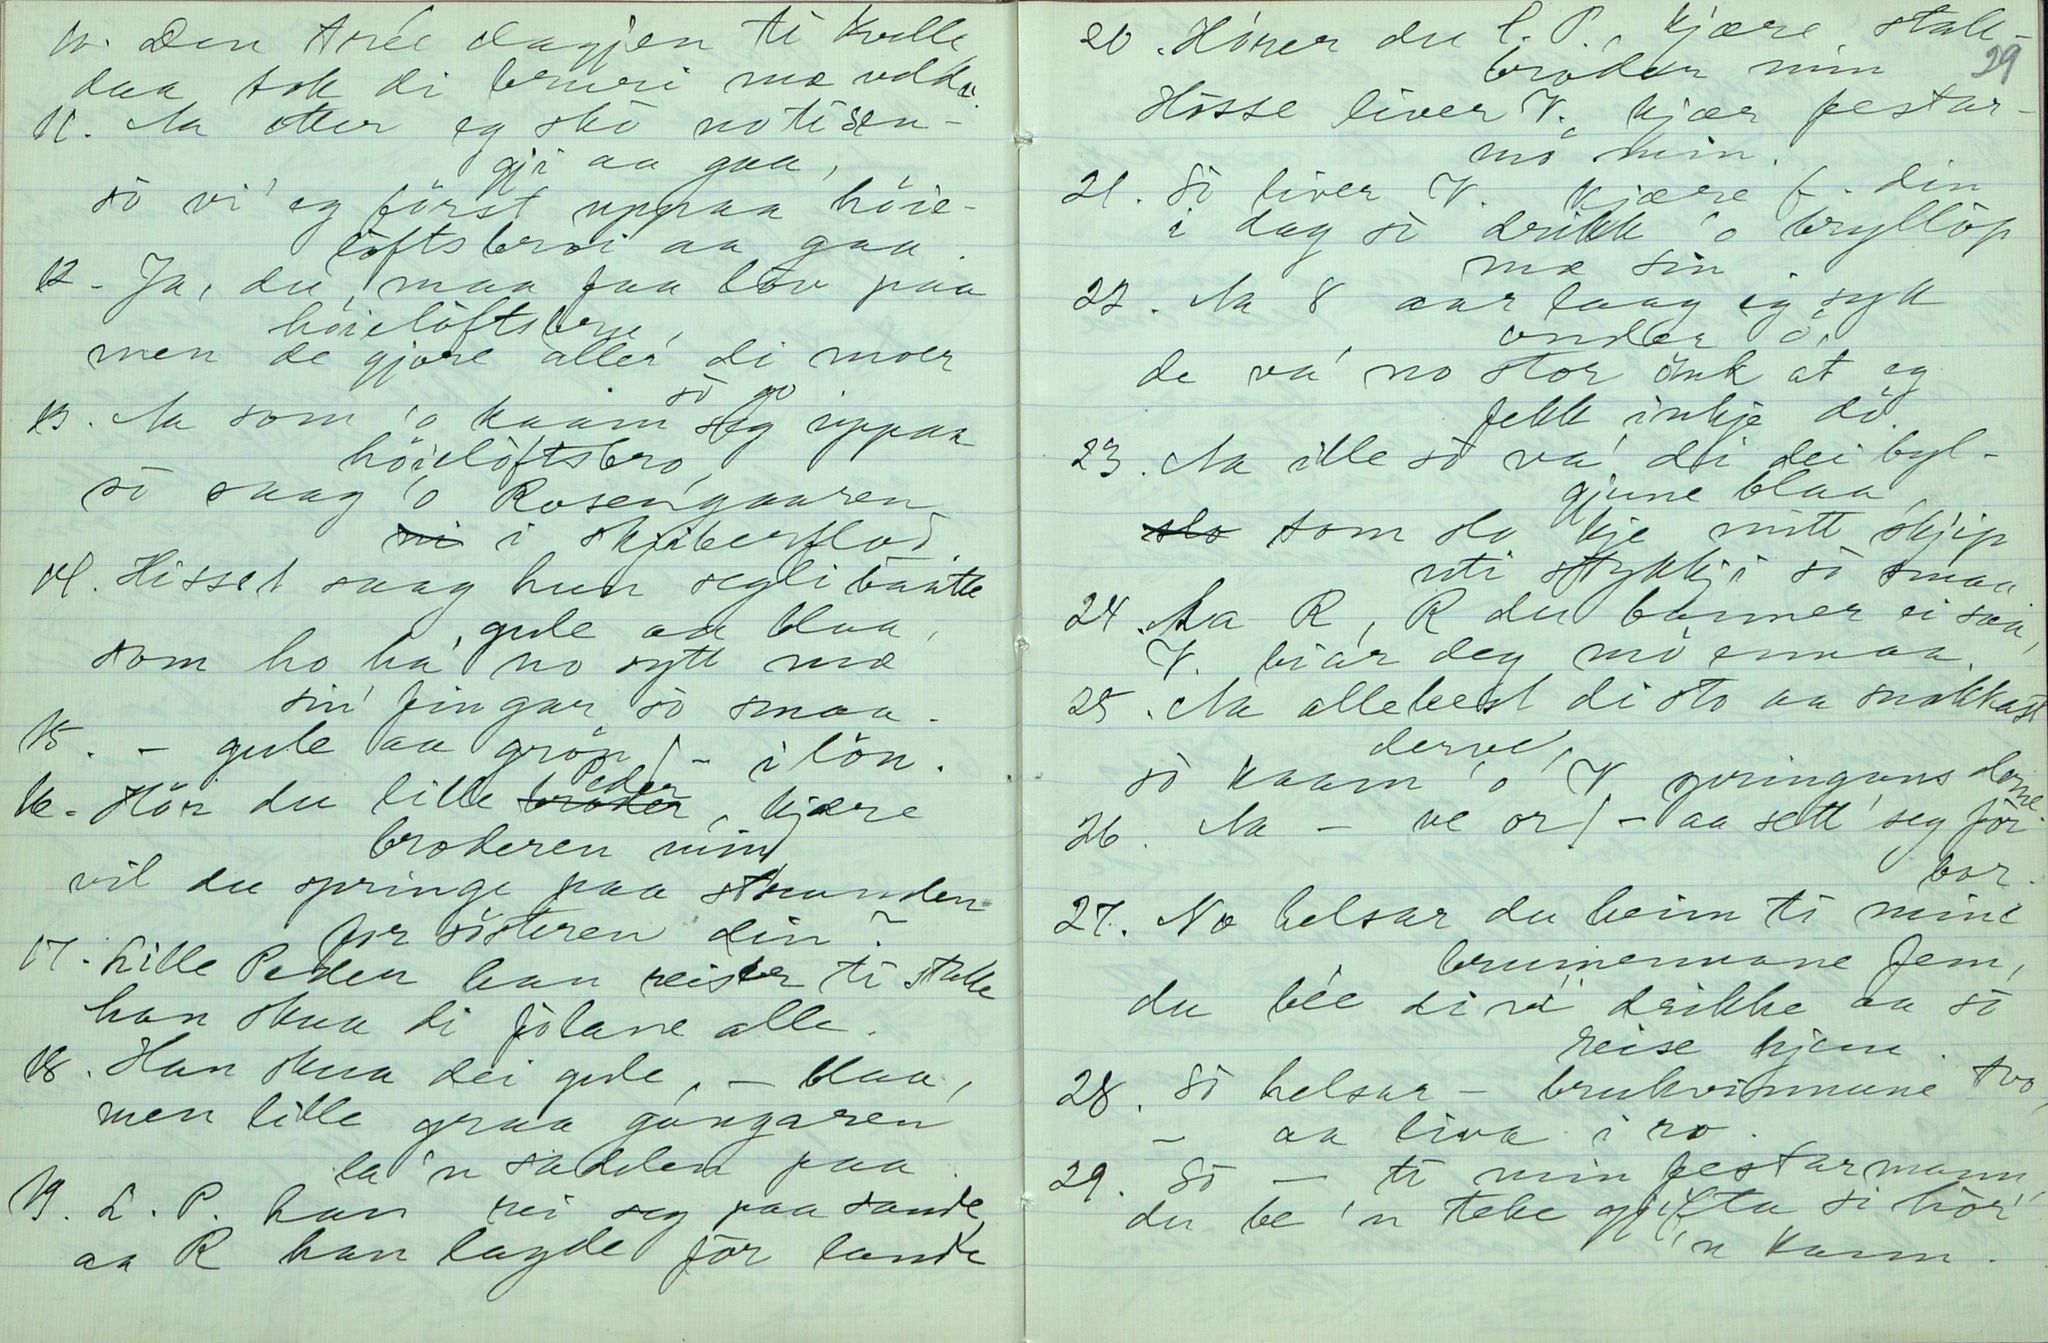 10. Den tree dagjen ti kvelle
daa tok di bruri mæ velde.
11. Aa etter eg skò no ti sen-
gji aa gaa,
sò vi' eg först uppaa höie-
löftsbroi aa gaa.
12. Ja, du maa faa lov paa
höielöftsbru,
men de gjore aller' di moer
sò go
13. Aa som 'o kaam seg uppaa
höielöftsbro,
sò saag 'o Rosengaaren
i skjiberflod.
14. Hisset saag hun segli baatte
gule aa blaa,
som ho ha' no sytt mæ
sin' fingar sò smaa.
15. – gule aa grön / – i lön.
16. Hör du lille broder Peder, kjære
broderen min,
vil du springe paa stranden
for sösteren din?
17. Lille Peder han reiser ti stalle
han skua di fòlane alle.
18. Han skua dei gule, – blaa,
men lille graa gangaren
la 'n sadelen paa.
19. L. P. han rei seg paa sande,
aa R han lagde för lande
29
20. Hörer du l. P., kjære stall-
broder min
Hòsse liver V., kjær festar-
mò min.
21. Sò liver V. kjære f. din
i dag sò drikk 'o bryllöp
mæ sin
22. Aa 8 aar laag eg syk
onder ö,
de va' no stor önk at eg
fekk inkje dö.
23. Aa ille sò va' di dei byl-
gjune blaa,
som slo kje mitt skjip
uti stykkji sò smaa
24. Aa R, R du banner ei saa,
V. biar deg mò ennaa.
25. Aa allebest di sto aa snakkast
derve,
sò kaam 'o V springans derne.
26. Aa – ve or / – aa sett' seg för
bor.
27. No helsar du heim ti mine
brumennane fem,
du bée di vè drikke aa sò
reise hjem.
28. Sò helsar – brukvinnune tvo,
– aa liva i ro.
29. Sò – ti min festarmann,
du be 'n tebe gjifta si hòr'
'n kann.